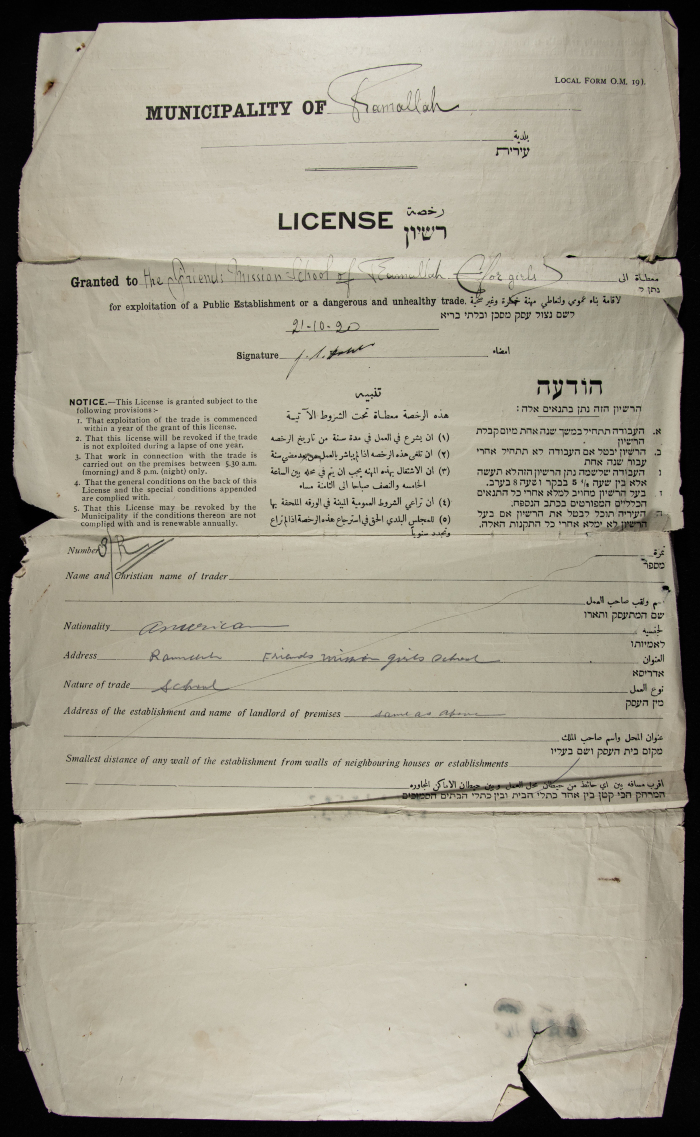 LOCAL FORM O.M. 19).
MUNICIPALITY OF Ramallah
بلدية
עירית
LICENSE
رخصة
רשיון
Granted to the Friends Mission School of Ramallah (for girls)
معطاة الى
נתן ל
for exploitation of a Public Establishment or a dangerous and unhealthy trade.
لاقامة بناء عمومي ولتعاطي مهنة خطرة وغير صحية
לשם נצול עסק מסכן ובלתי בריא
21-10-20
Signature
امضاء
NOTICE.—This License is granted subject to the
following provisions:-
1. That exploitation of the trade is commenced
within a year of the grant of this license.
2. That this license will be revoked if the trade
is not exploited during a lapse of one year.
3. That work in connection with the trade is
carried out on the premises between 5.30 a.m.
(morning) and 8 p.m. (night) only.
4. That the general conditions on the back of
this License and the special conditions appended
are complied with.
5. That this License may be revoked by the
Municipality if the conditions thereon are not
complied with and is renewable annually.
تنبيه
هذه الرخصة معطاة تحت الشروط الآتية
(١) ان يشرع في العمل في مدة سنة من تاريخ الرخصه
(٢) ان تلغى هذه الرخصه اذا لم يباشر بالعمل بعد مضي سنة
(٣) ان الاشتغال بهذه المهنه يجب ان يتم في محله بين الساعة
الخامسه والنصف صباحا الى الثامنة مساء
(٤) ان تراعي الشروط العمومية المبينة في الورقه الملحقة بها
(٥) للمجلس البلدي الحق في استرجاع هذه الرخصة اذا لم تراع
وتجدد سنوياً
הודעה
הרשיון הזה נתן בתנאים אלה:
א. העבודה תתחיל במשך שנה אחת מיום קבלת
הרשיון
ב. הרשיון יבטל אם העבודה לא תתחיל אחרי
עבור שנה אחת
ג העבודה שלשמה נתן הרשיון הזה לא תעשה
אלא בין שעה 5½ בבקר ו שעה 8 בערב.
ד בעל הרשיון מחויב למלא אחרי כל התנאים
הכלליים המפורטים בכתב הנספח.
ה העיריה תוכל לבטל את הרשיון אם בעל
הרשיון לא ימלא אחרי כל התקנות האלה.
Number
نمرة
מספר
Name and Christian name of trader
اسم ولقب صاحب العمل
שם המתעסק ותארו
Nationality American
الجنسيه
לאמיותו
Address Ramallah Friends Mission girls School
العنوان
אדריסא
Nature of trade School
نوع العمل
מין העסק
Address of the establishment and name of landlord of premises same as above
عنوان المحل واسم صاحب الملك
מקום בית העסק ושם בעליו
Smallest distance of any wall of the establishment from walls of neighbouring houses or establishments
اقرب مسافه بين اي حائط من حيطان محل العمل وبين حيطان الاماكن المجاوره
המרחק הכי קטן בין אחד כתלי הבית ובין כתלי הבתים הסמוכים